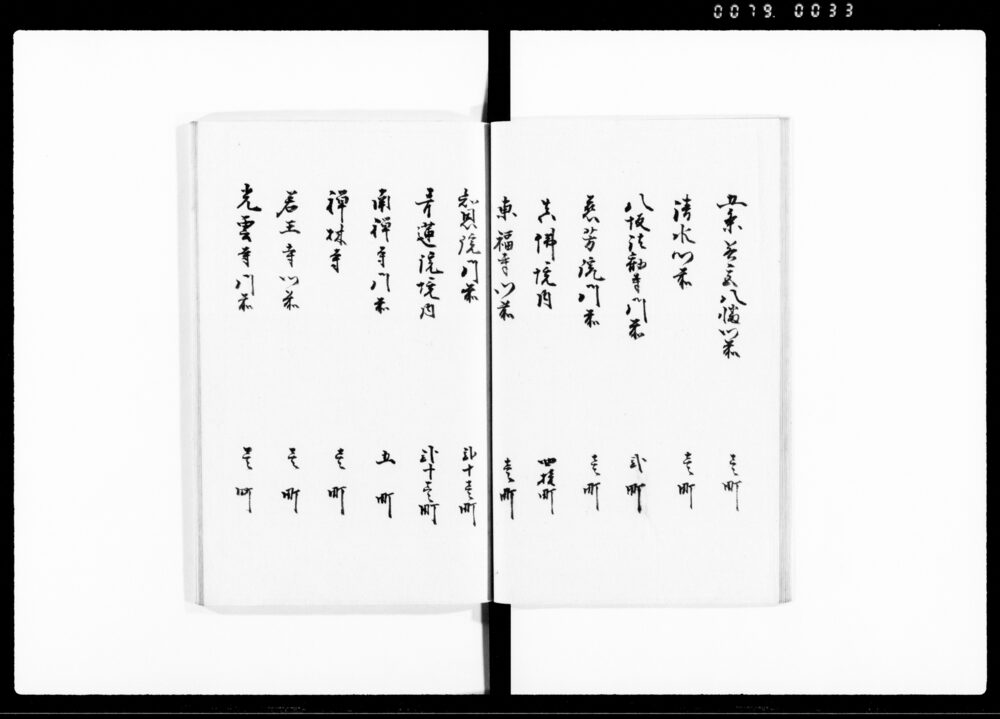 0079. 0033
五条若宮八幡門前 壱町
清水門前 壱町
八坂法観寺門前 弐町
慈芳院門前 壱町
大佛境内 四拾町
東福寺門前 壱町
知恩院門前 弐十壱町
青蓮院境内 弐十壱町
南禅寺門前 五町
禅林寺 壱町
若王寺門前 壱町
光雲寺門前 壱町